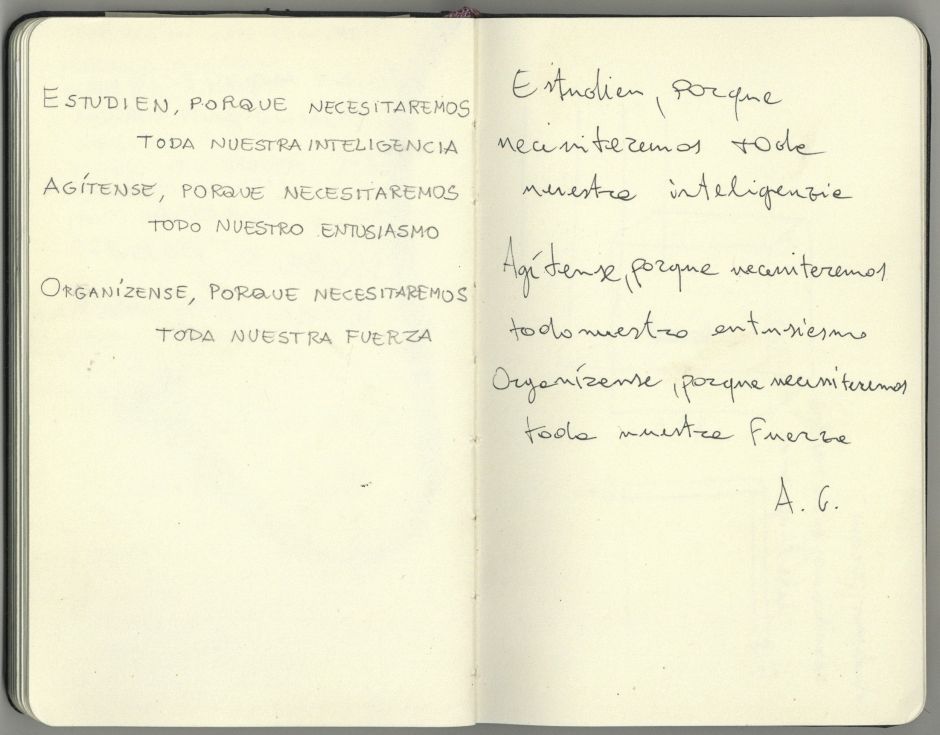 ESTUDIEN, PORQUE NECESITAREMOS
TODA NUESTRA INTELIGENCIA
AGÍTENSE, PORQUE NECESITAREMOS
TODO NUESTRO ENTUSIASMO
ORGANÍZENSE, PORQUE NECESITAREMOS
TODA NUESTRA FUERZA
Estudien, porque
necesitaremos toda
nuestra inteligenzia
Agítense, porque necesitaremos
todo nuestro entusiasmo
Organízense, porque necesitaremos
toda nuestra Fuerza
A. G.